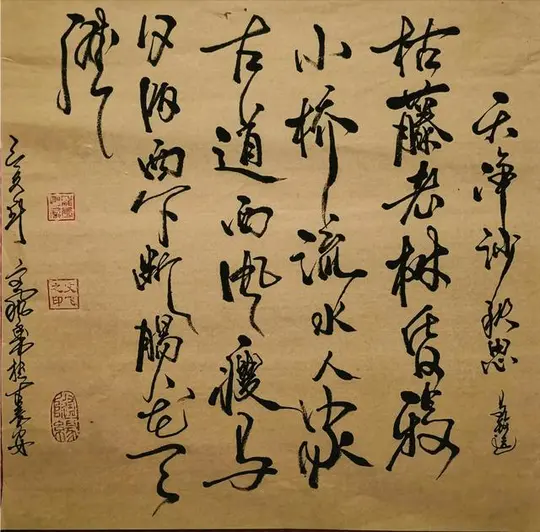 天净沙秋思 马致远
枯藤老树昏鸦
小桥流水人家
古道西风瘦马
夕阳西下断肠人在天
涯
文飞之印